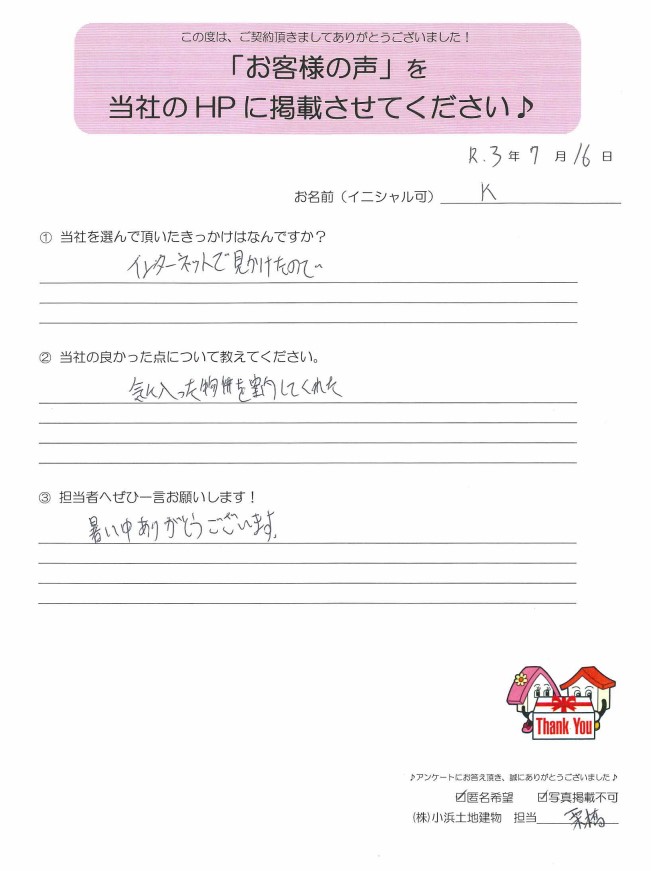 この度は、ご契約頂きましてありがとうございました！
「お客様の声」を
当社のHPに掲載させてください♪
R.3年7月16日
お名前（イニシャル可） K
① 当社を選んで頂いたきっかけはなんですか？
インターネットで見かけたので
② 当社の良かった点について教えてください。
気に入った物件を案内してくれた
③ 担当者へぜひ一言お願いします！
暑い中ありがとうございます。
Thank You
♪アンケートにお答え頂き、誠にありがとうございました♪
☑匿名希望 ☑写真掲載不可
(株)小浜土地建物 担当 栗橋